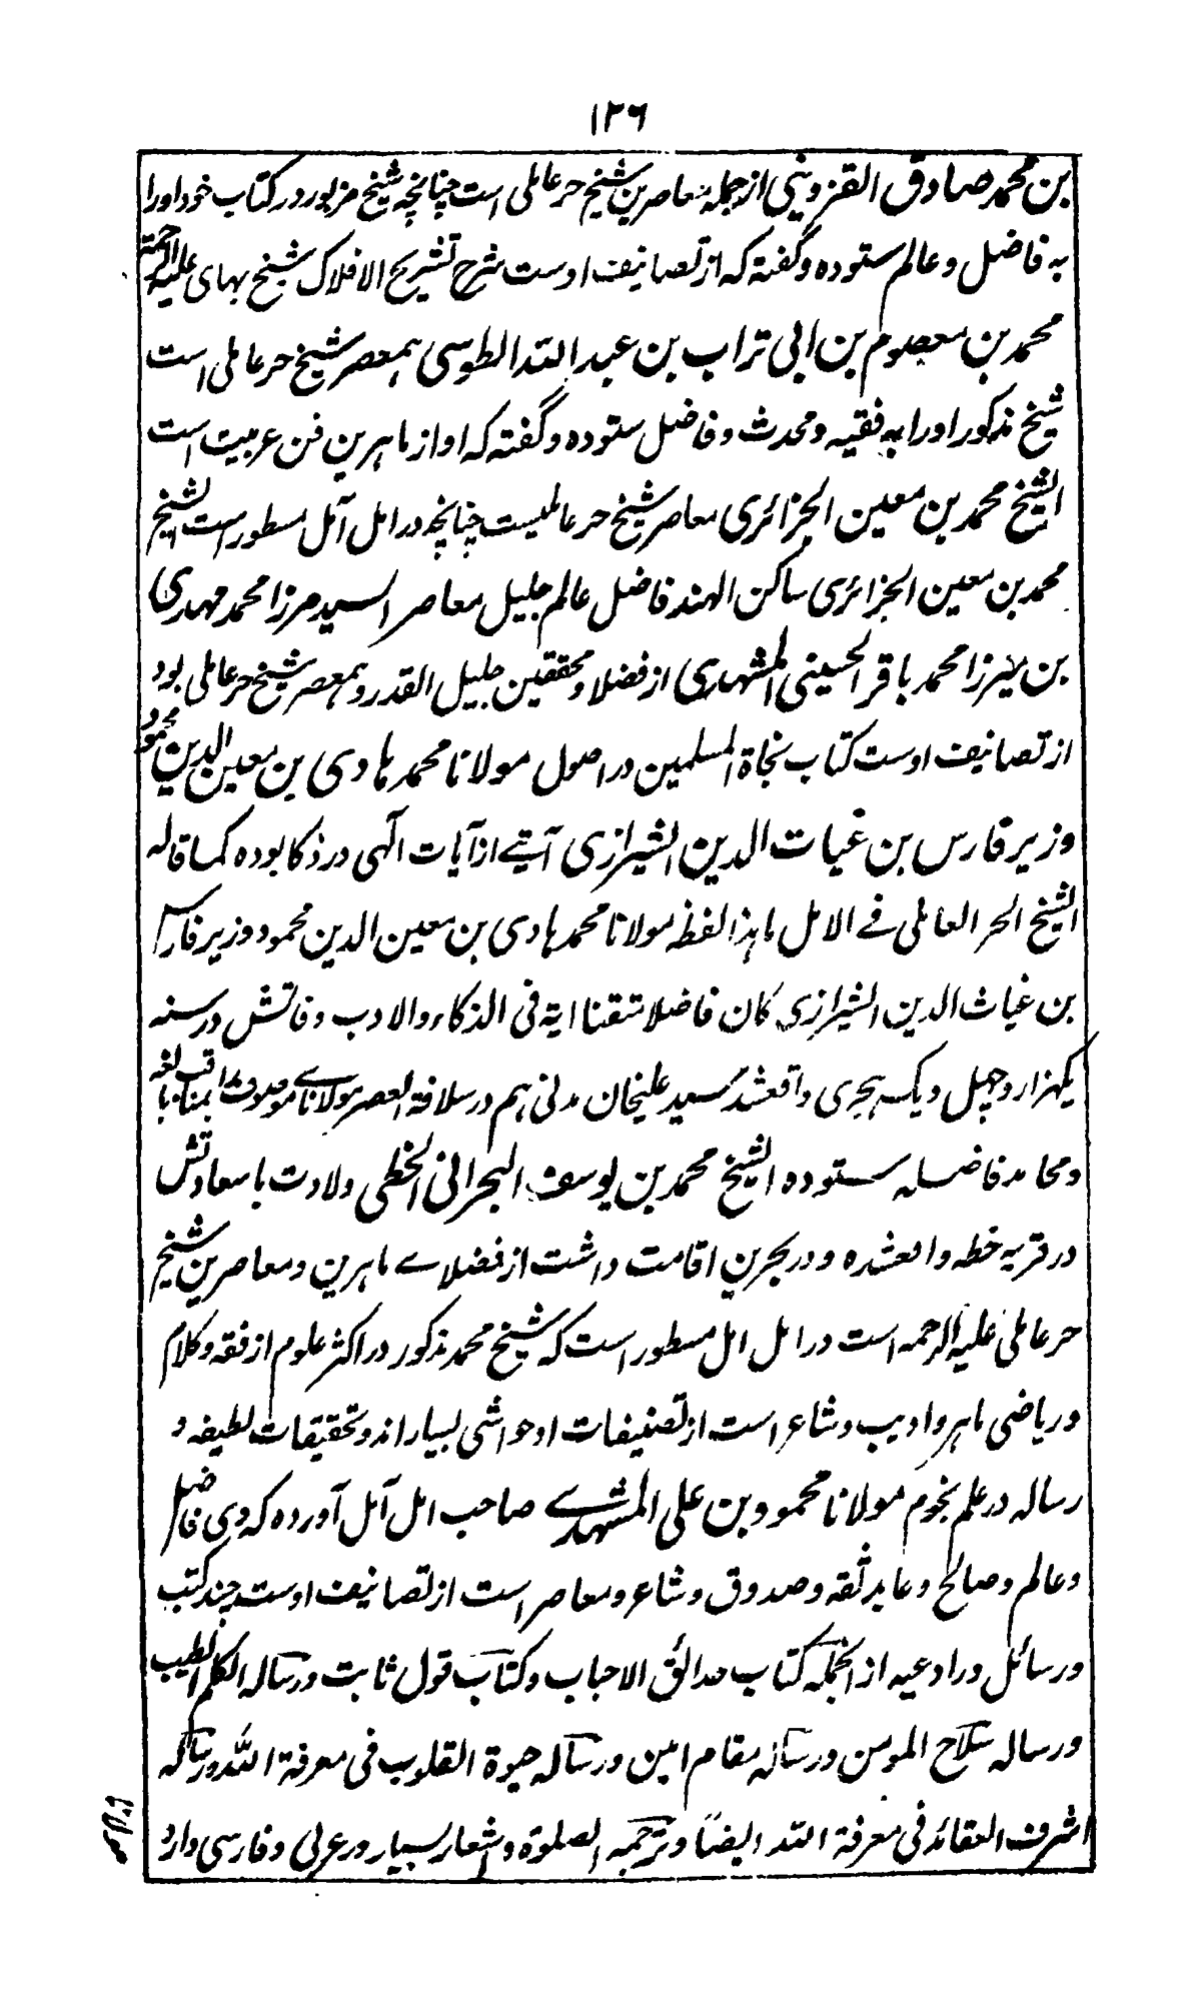 ۱۲۶
بن محمد صادق القزوینی از جمله معاصرین شیخ حر عاملی است چنانچه شیخ مزبور در کتاب خود اورا
به فاضل و عالم ستوده و گفته که از تصانیف اوست شرح تشریح الافلاک شیخ بهای علیه الرحمة
محمد بن معصوم بن ابی تراب بن عبد الله الطوسی همعصر شیخ حر عاملی است
شیخ مذکور اورا به فقیه و محدث و فاضل ستوده و گفته که او از ماهرین فن عربیت است
الشیخ محمد بن معین الجزائری معاصر شیخ حر عاملیست چنانچه در امل آمل مسطور است الشیخ
محمد بن معین الجزائری ساکن الهند فاضل عالم جلیل معاصر السید مرزا محمد مهدی
بن میرزا محمد باقر الحسینی المشهدی از فضلا و محققین جلیل القدر و همعصر شیخ حر عاملی بود
از تصانیف اوست کتاب نجاة المسلمین در اصول مولانا محمد هادی بن معین الدین محمود
وزیر فارس بن غیاث الدین الشیرازی آیتے از آیات الٰهی در ذکا بوده کما قاله
الشیخ الحر العاملی فے الامل ما هذا لفظه مولانا محمد هادی بن معین الدین محمود وزیر فارس
بن غیاث الدین الشیرازی کان فاضلا متقنا ایة فی الذکاء والادب وفاتش در سنه
یکهزار و چهل و یک هجری واقعشد سید علیخان مدنی هم در سلافة العصر مولاناے موصوف را بمناقب بالغه
و محامد فاضله ستوده الشیخ محمد بن یوسف البحرانی الخطی ولادت با سعادتش
در قریه خطه واقعشده و در بحرین اقامت داشت از فضلاے ماهرین و معاصرین شیخ
حر عاملی علیه الرحمه است در امل امل مسطور است که شیخ محمد مذکور در اکثر علوم از فقه و کلام
و ریاضی ماهر و ادیب و شاعر است از تصنیفات او حواشی بسیار اند و تحقیقات لطیفه و
رساله در علم نجوم مولانا محمود بن علی المشهدے صاحب امل آمل آورده که وی فاضل
و عالم و صالح و عابد ثقه و صدوق و شاعر و معاصر است از تصانیف اوست چند کتب
و رسائل در ادعیه از انجمله کتاب حدائق الاحباب و کتاب قول ثابت و رساله الکلم الطیب
و رساله سلاح المومن و رساله مقام امین و رساله حیوة القلوب فی معرفة الله و رساله
اشرف العقائد فی معرفة الله ایضاً و ترجمه الصلوة و اشعار بسیار در عربی و فارسی دارد